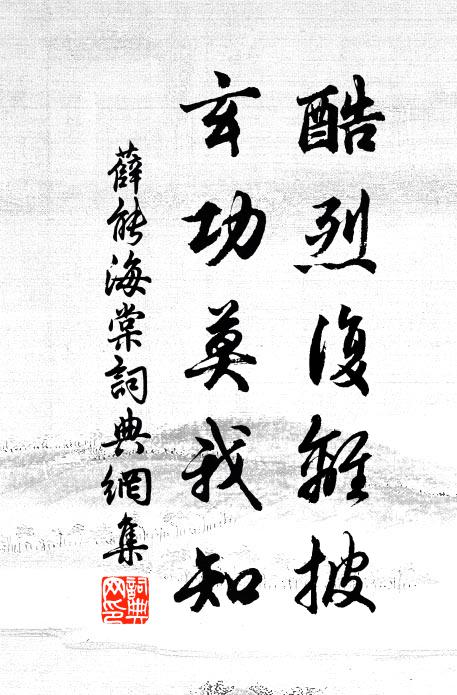 酷烈復離披
玄功莫我知
薛能海棠詞典網集
詞典网